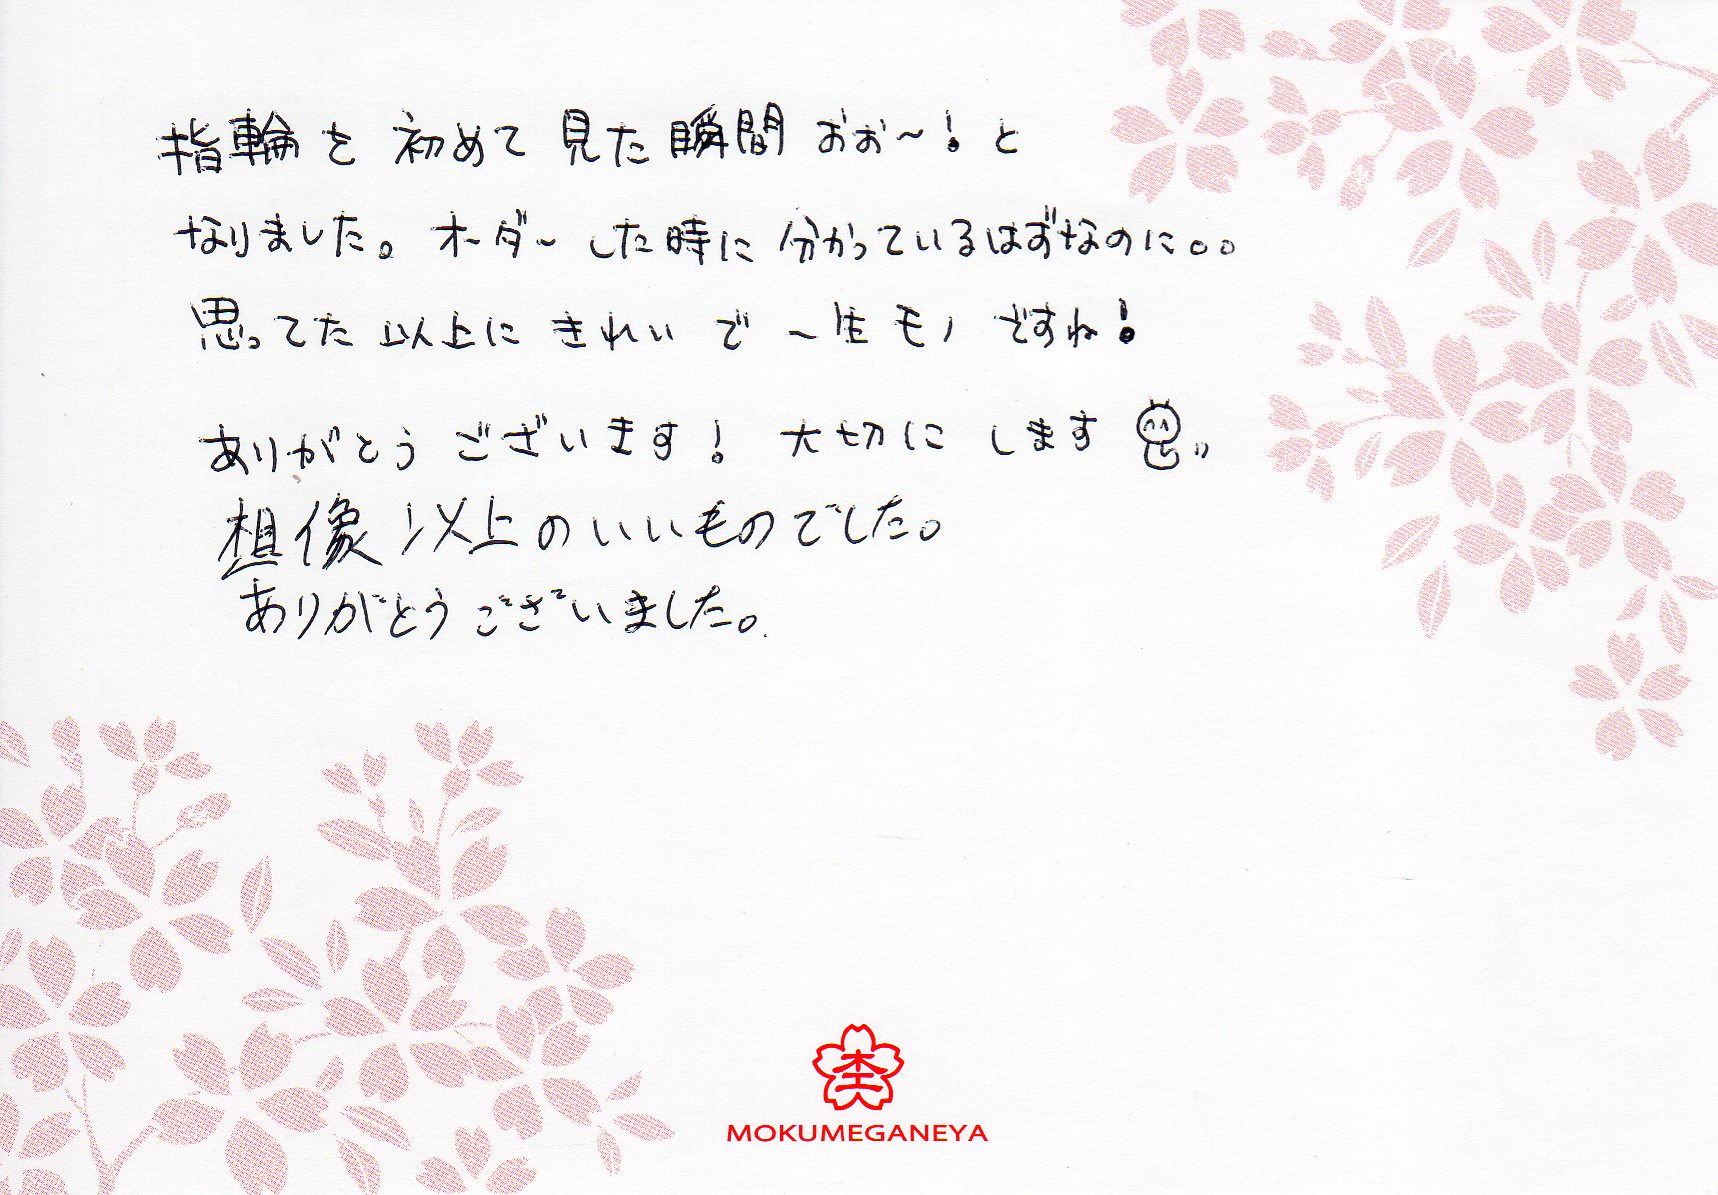 指輪を初めて見た瞬間おぉ〜!と
なりました。オーダーした時に分かっているはずなのに。。
思ってた以上にきれいで一生モノですね!
ありがとうございます!大切にします
想像以上のいいものでした。
ありがとうございました。
杢
MOKUMEGANEYA